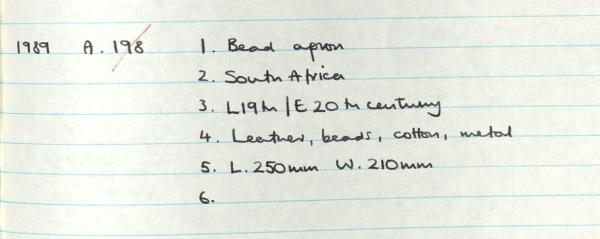 1989 A. 198 1. Bead apron
2. South Africa
3. L19th / E 20th century
4. Leather, beads, cotton, metal
5. L. 250mm W. 210mm
6.